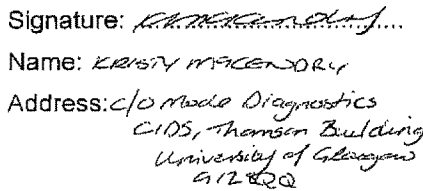 Signature:
Name: KRISTY MCKENDRY
Address: c/o Mode Diagnostics
CIDS, Thomson Building
University of Glasgow
G12 8QQ